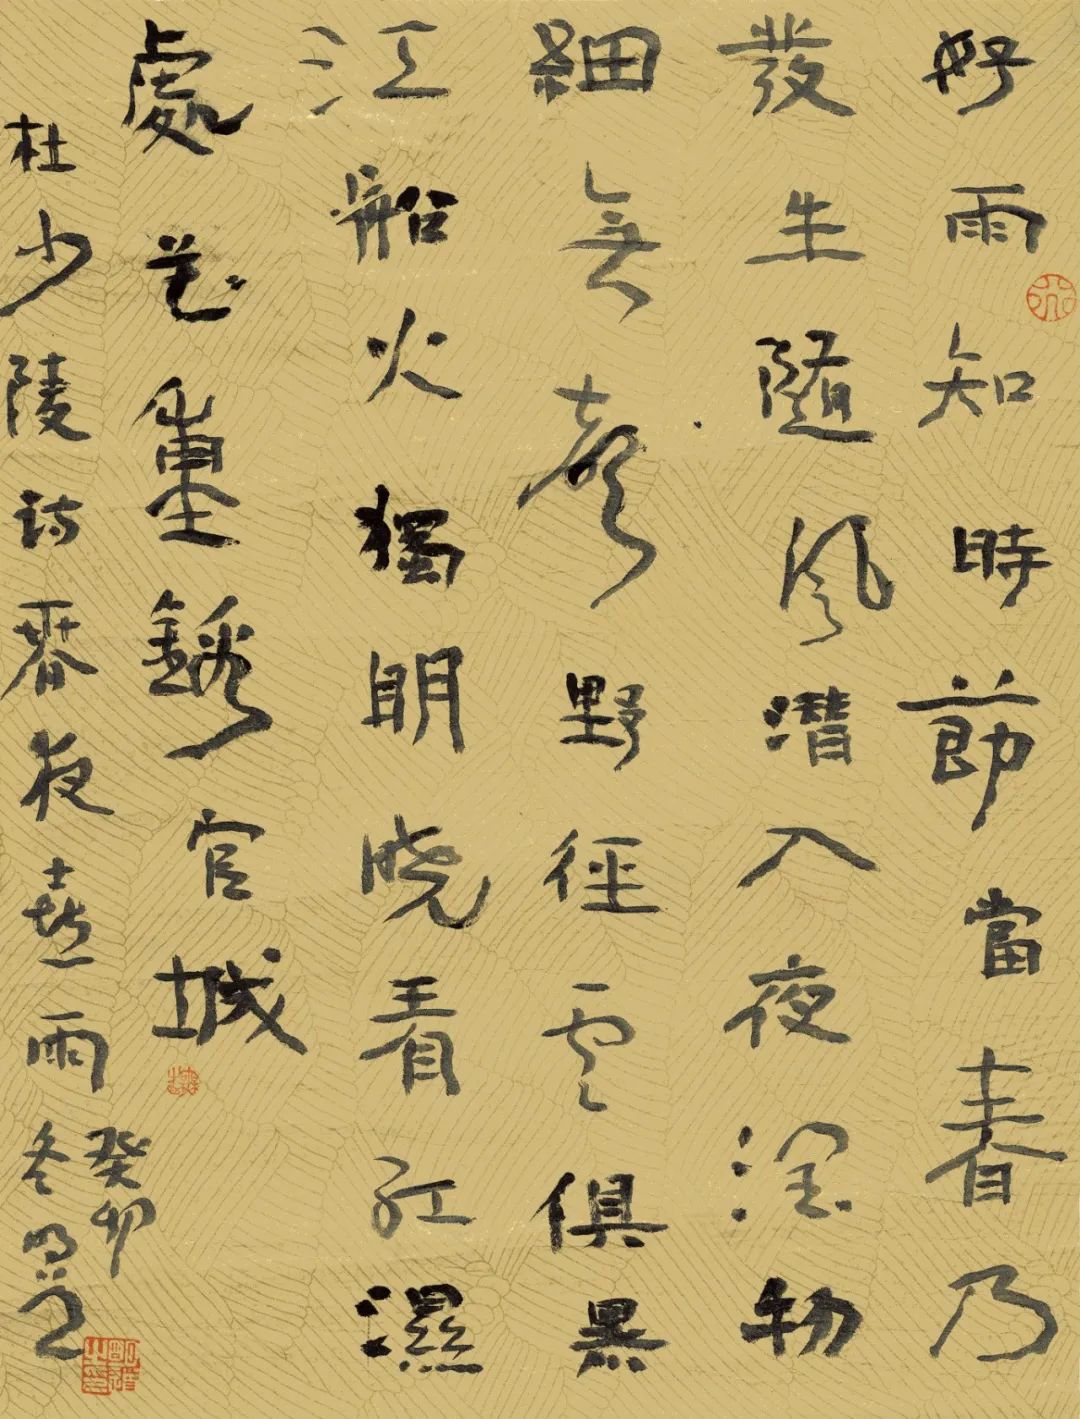 好雨知時節當春乃
發生隨風潛入夜潤物
細無聲野徑雲俱黑
江船火獨明曉看紅濕
處花重錦官城
杜少陵詩春夜喜雨
癸卯
冬明